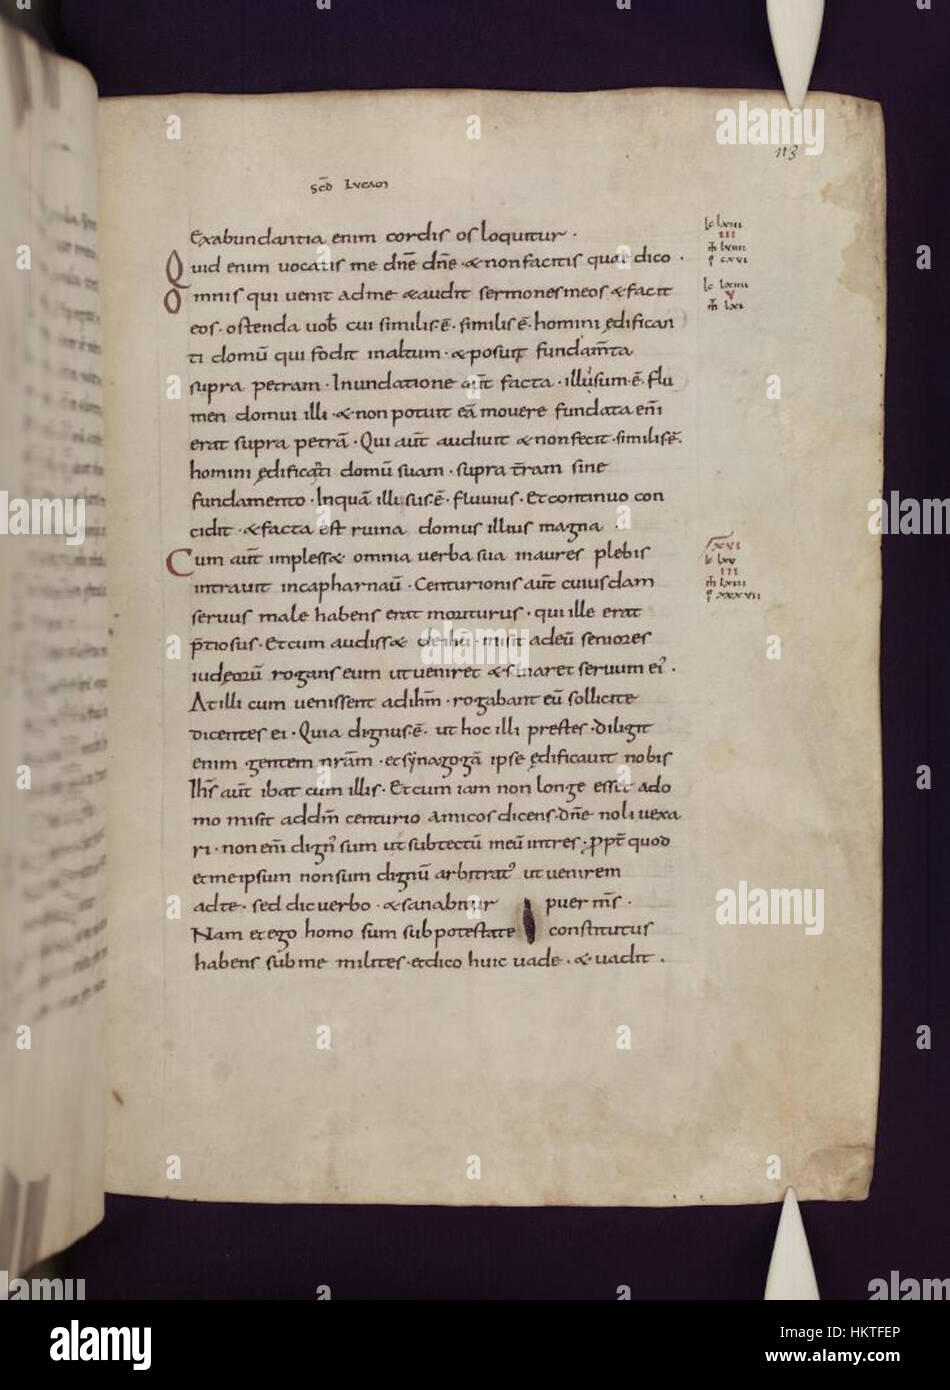 113
scd Lucam
Exabundantia enim cordis os loquitur ·
Quid enim uocatis me dn̄e dn̄e · & non facitis quae dico ·
Omnis qui uenit ad me & audit sermones meos & facit
eos · ostendā uob̄ cui similis · ē · similis ē · homini ędifican
ti domū qui fodit in altum · & posuit fundam̄ta
supra petram · Inundatione aūt facta · illisum · ē · flu
men domui illi · & non potuit eā mouere fundata em̄
erat supra petrā · Qui aūt audiuit & non fecit · similis ē ·
homini ędificanti domū suam · supra t̄ram sine
fundamento · In quā illisus · ē · fluuius · Et continuo con
cidit · & facta est ruina domus illius magna ·
Cum aūt impless& omnia uerba sua in aures plebis
intrauit in capharnaū · Centurionis aūt cuiusdam
seruus male habens erat moriturus · qui ille erat
p̄tiosus · Et cum audiss& de ihū · misit ad eū seniores
iudeorū rogans eum ut ueniret & saluaret seruum ei᾽ ·
At illi cum uenissent ad ihm̄ · rogabant eū sollicite
dicentes ei · Quia dignus · ē · ut hoc illi prestes · diligit
enim gentem nr̄am · et synagogā ipse ędificauit nobis
Ihs̄ aūt ibat cum illis · Et cum iam non longe esset a do
mo misit ad dm̄ centurio amicos dicens · dn̄e noli uexa
ri · non em̄ dign᾽ sum ut sub tectū meū intres · ppt̄ quod
et me ipsum non sum dignū arbitrat᾽ ut uenirem
ad te · sed dic uerbo · & sanabitur puer ms̄ ·
Nam et ego homo sum sub potestate constitutus
habens sub me milites · et dico huic uade · & uadit ·
lc lxiii
iii
m̄ lviiii
lc lxiiii
v
m̄ lxi
xxvi
lc lxv
iii
m̄ lxiii
alamy
HKTFEP
www.alamy.com